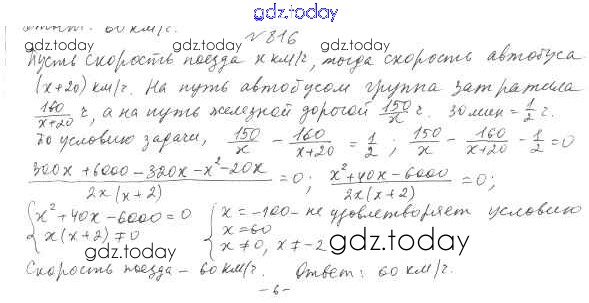 gdz.today
Ответ: 60 км/ч.
gdz.today №816 gdz.today
Пусть скорость поезда x км/ч, тогда скорость автобуса
(x+20) км/ч. На путь автобусом группа затратила
160/(x+20) ч, а на путь железной дорогой 150/x ч. 30 мин = 1/2 ч.
По условию задачи, 150/x - 160/(x+20) = 1/2; 150/x - 160/(x+20) - 1/2 = 0
gdz.today gdz.today
(300x + 6000 - 320x - x² - 20x)/(2x(x+2)) = 0; (x² + 40x - 6000)/(2x(x+2)) = 0;
{x² + 40x - 6000 = 0 {x = -100 - не удовлетворяет условию
{x(x+2) ≠ 0 x = 60
x ≠ 0, x ≠ -2
gdz.today gdz.today
Скорость поезда - 60 км/ч. Ответ: 60 км/ч.
-6-